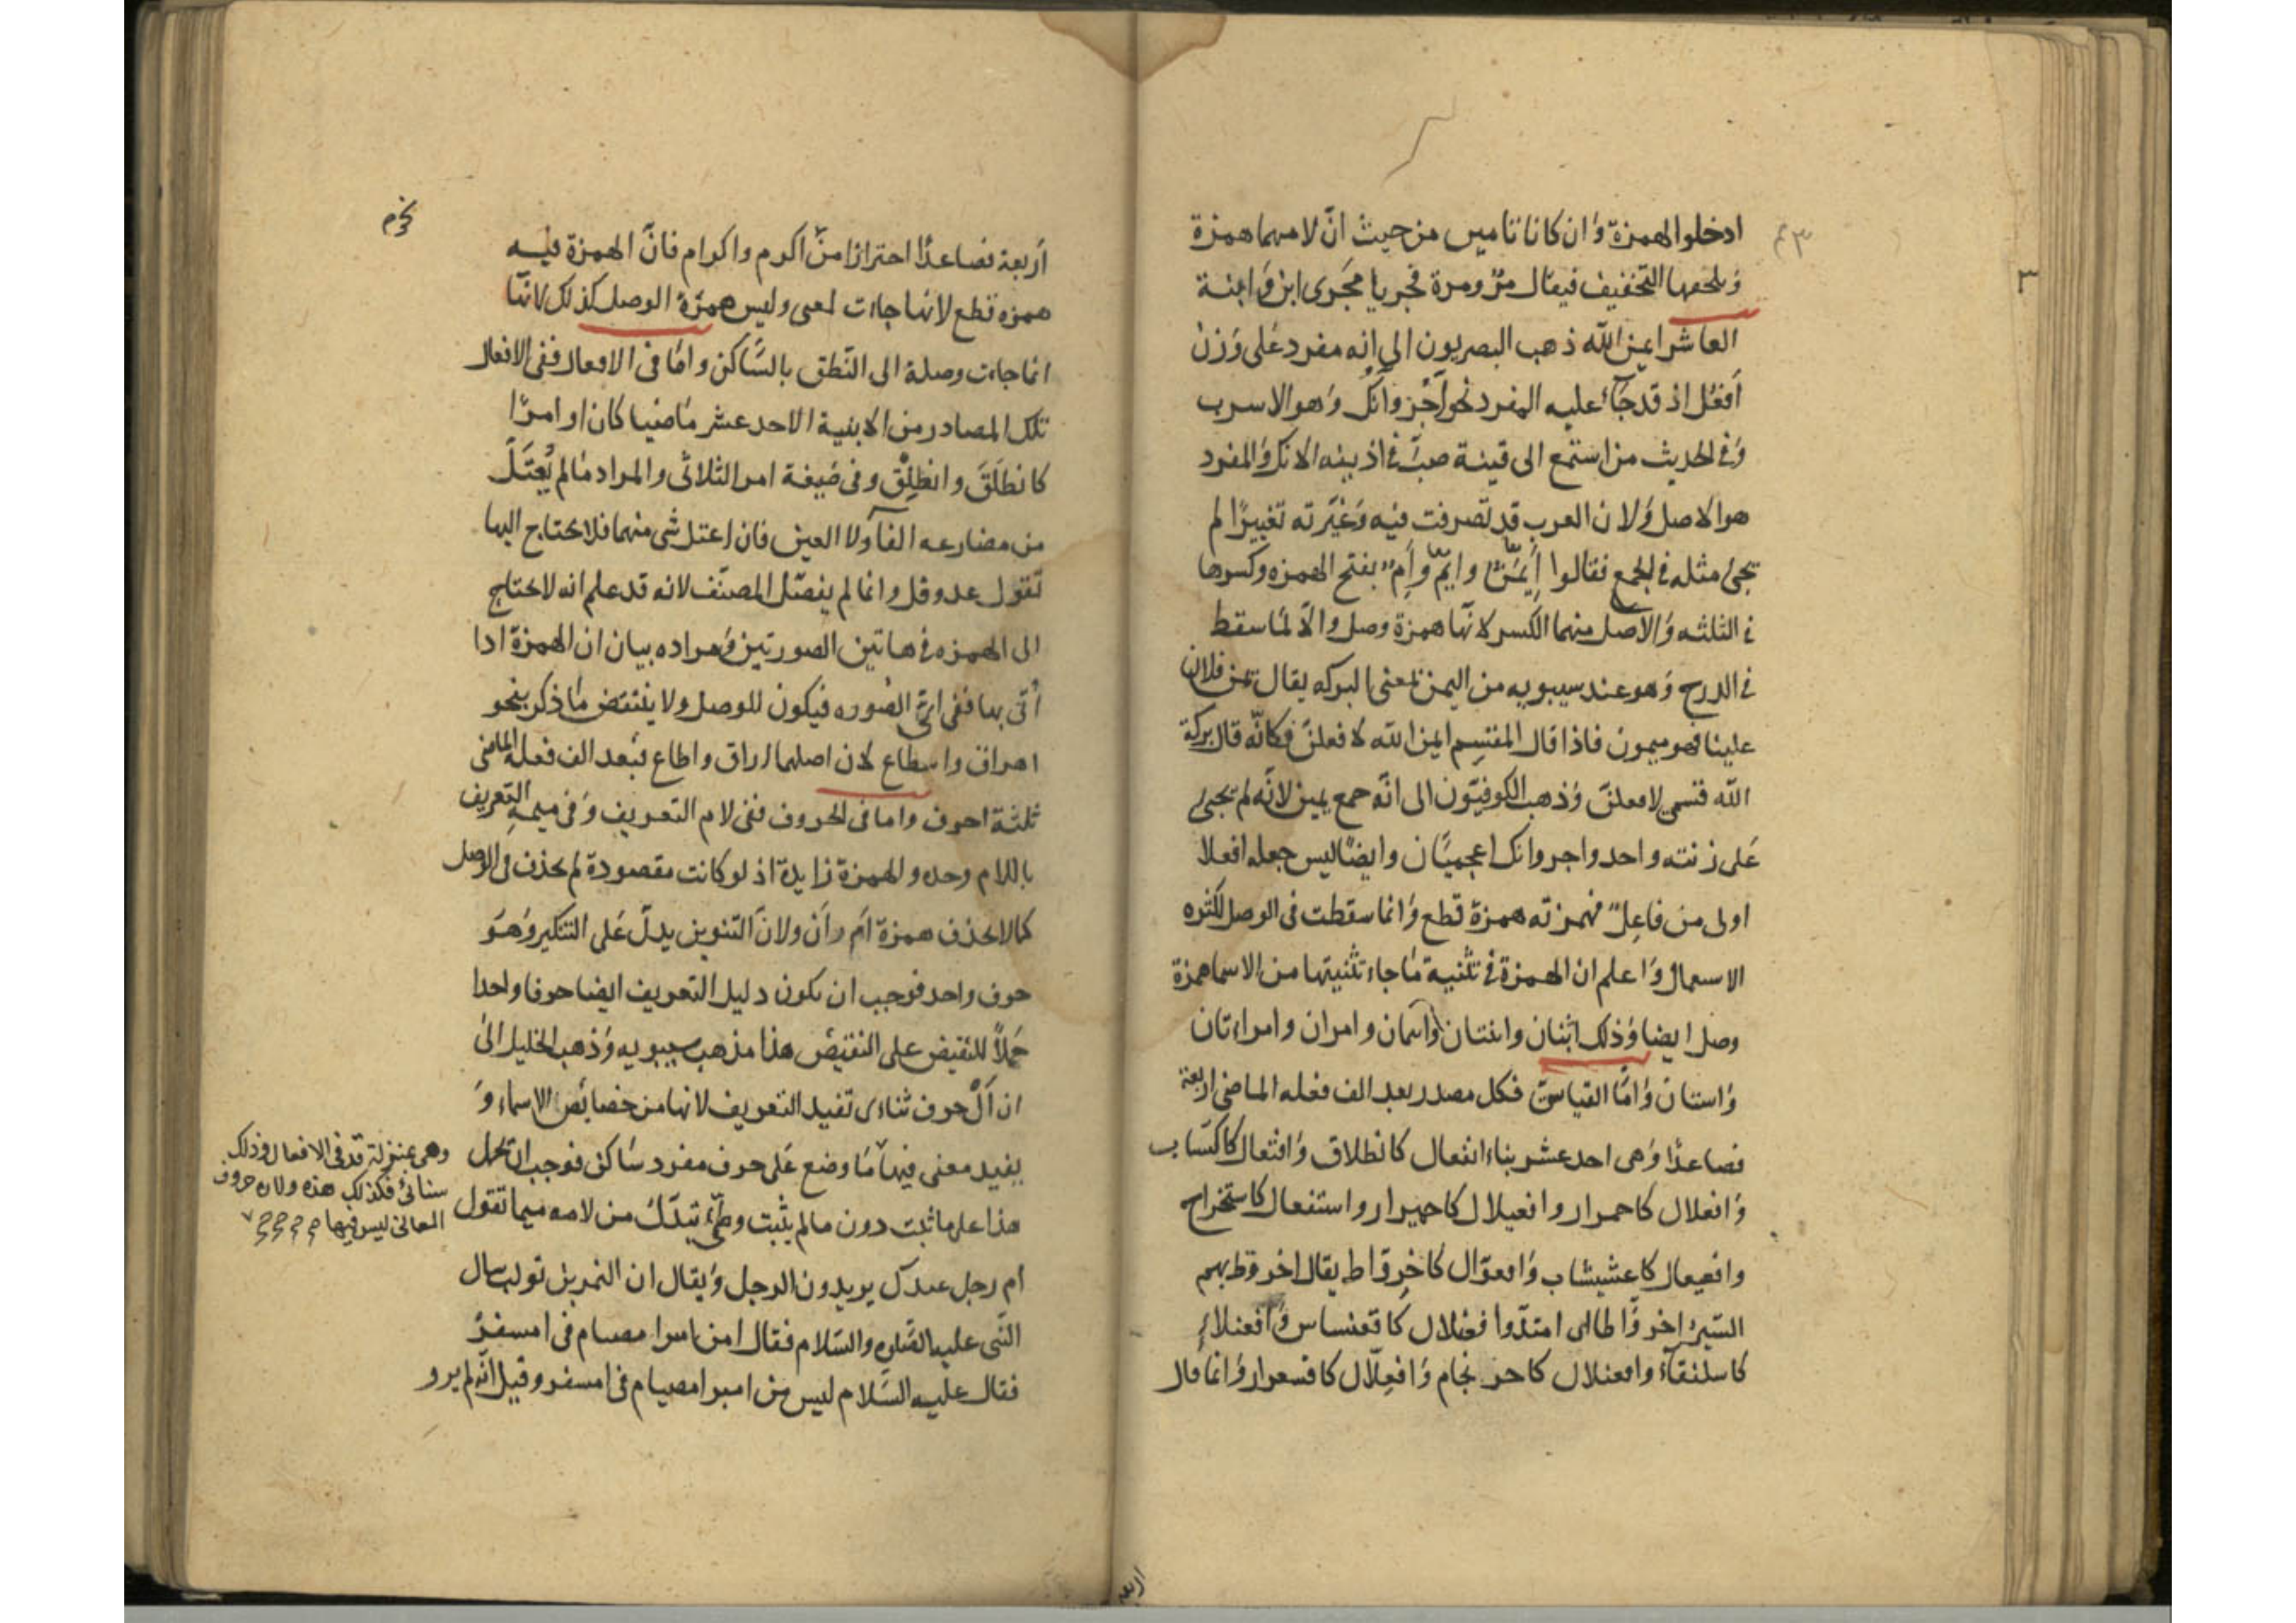 ادخلوا الهمزة وان كانا تاميں من حيث انّ لامهما همزة
ويلحقها التخفيف فيقال مرٌ ومرة فجريا مجرى ابن وَ ابنة
العاشر ايمن الله ذهب البصريون الى انه مفرد على وزن
أفعُل اذ قد جاء عليه المفرد نحو آجُر وآنُك وهو الاسرب
وفى الحديث من استمع الى قينة صبّ فى اذنيه الآنك والمفرد
هو الاصل ولان العرب قد تصرفت فيه وغيّرته تغييرًا لم
يجئ مثله فى الجمع فقالوا ايمُن وايمُ وأم بفتح الهمزه وكسرها
فى الثلثه والاصل منهما الكسر لانّها همزة وصل والا لما سقط
فى الدرج وهو عند سيبويه من اليمن بمعنى البركه يقال يمن فلان
علينا فهو ميمون فاذا قال المقسم ايمن الله لافعلنّ فكانّه قال بركة
الله قسمى لافعلنّ وذهب الكوفيّون الى انّه جمع يمين لانّه لم يجئ
على زنته واحد واجر وانك اعجميّان وايضا ليس جعله افعلا
اولى من فاعلٌ فهمزته همزة قطع وانما سقطت فى الوصل لكثره
الاسعمال واعلم ان الهمزة فى تثنية ما جاء تثنيتها من الاسما همزة
وصل ايضا وذلك ابنان وابنتان واسمان وامران وامراءتان
واستان وامّا القياسىّ فكل مصدر بعد الف فعله الماضى اربعة
فصاعدًا وهى احد عشر بناء انفعال كانطلاق وافتعال كاكتساب
وافعلال كاحمرار وافعيلال كاحميرار واستفعال كاستخراج
وافعيعال كاعشيشاب وافعوّال كاخروّاط يقال اخروّط بهم
السّيرُ اخروّاطا اى امتدّ وافعنلال كاقعنساس وافعنلاء
كاسلنقاء وافعنلال كاحرنجام وافعلّال كاقشعرار وانما قال
أربعة فصاعدًا احترازا من اكرم واكرام فانّ الهمزة فيه
همزه قطع لانها جاءت لمعنى وليس همزة الوصل كذلك لانّها
انما جاءت وصلة الى النّطق بالسّاكن وامّا فى الافعال ففى الافعال
تلك المصادر من الابنية الاحد عشر ماضيا كان او امرًا
كانطلَقَ وانطلِقْ وفى صيغة امر الثلاثى والمراد مالم يُعتَلّ
من مضارعه الفاء ولا العين فان اعتل شى منهما فلا يحتاج اليها
تقول عد وقل وانما لم يفصّل المصنّف لانه قد علم انه لا يحتاج
الى الهمزه فى هاتين الصورتين ومراده بيان ان الهمزة اذا
أتى بها ففى اىّ الصوره فيكون للوصل ولا ينتقض ما ذكر بنحو
اهراق واسطاع لان اصلهما اراق واطاع فبعد الف فعله الماضى
ثلثة احرف واما فى الحروف ففى لام التعريف وفى ميمه التعريف
باللام وحده والهمزة زايدة اذ لو كانت مقصودة لم تحذف فى الوصل
كما لا تحذف همزة ام وأن ولانّ التنوين يدلّ على التنكير وهو
حرف واحد فوجب ان يكون دليل التعريف ايضا حرفا واحدا
حملاً للنقيض على النقيض هذا مذهب سيبويه وذهب الخليل الى
ان ألْ حرف ثنائى تفيد التعريف لانها من خصائص الاسماء و
يفيد معنى فيها ما وضع على حرف مفرد ساكن فوجب ان تحمل
هذا على ما ثبت دون مالم يثبت وطىّ تبدّل من لامه ميما تقول
ام رجل عندك يريدون الرجل ويقال ان النمر بن تولب سال
النّبى عليه الصّلوه والسّلام فقال امن امبر امصيام فى امسفر
فقال عليه السّلام ليس من امبر امصيام فى امسفر وقيل انّه لم يرو
وهى بمنزلة قد فى الافعال وذلك
ثنائىّ فكذلك هذه ولان حروف
المعانى ليس فيها
اربعة